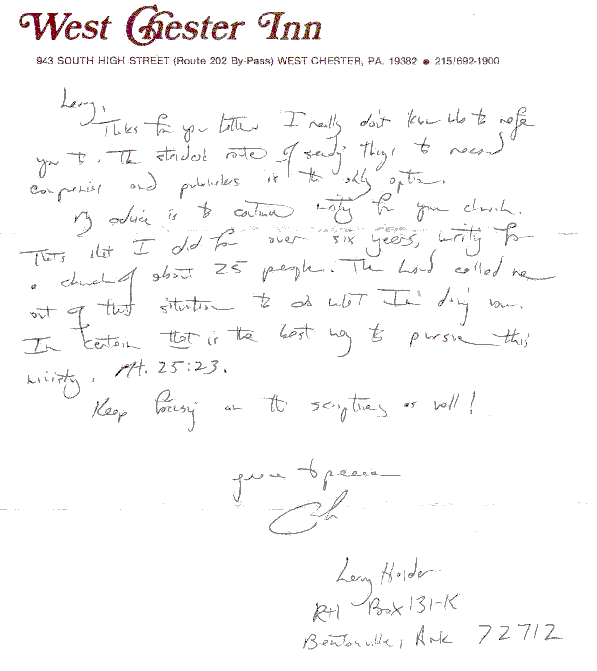 West Chester Inn
943 SOUTH HIGH STREET (Route 202 By-Pass) WEST CHESTER, PA. 19382 ● 215/692-1900
Larry,
Thanks for your letter. I really don't know who to refer
you to. The standard route of sending things to record
companies and publishers is the only option.
My advice is to continue writing for your church.
That's what I did for over six years, writing for
a church of about 25 people. The Lord called me
out of that situation to do what I'm doing now.
I'm certain that is the best way to pursue this
ministry. Mt. 25:23.
Keep focusing on the scriptures as well!
grace & peace
Larry Holder
Rt 1 Box 131-K
Bentonville, Ark 72712